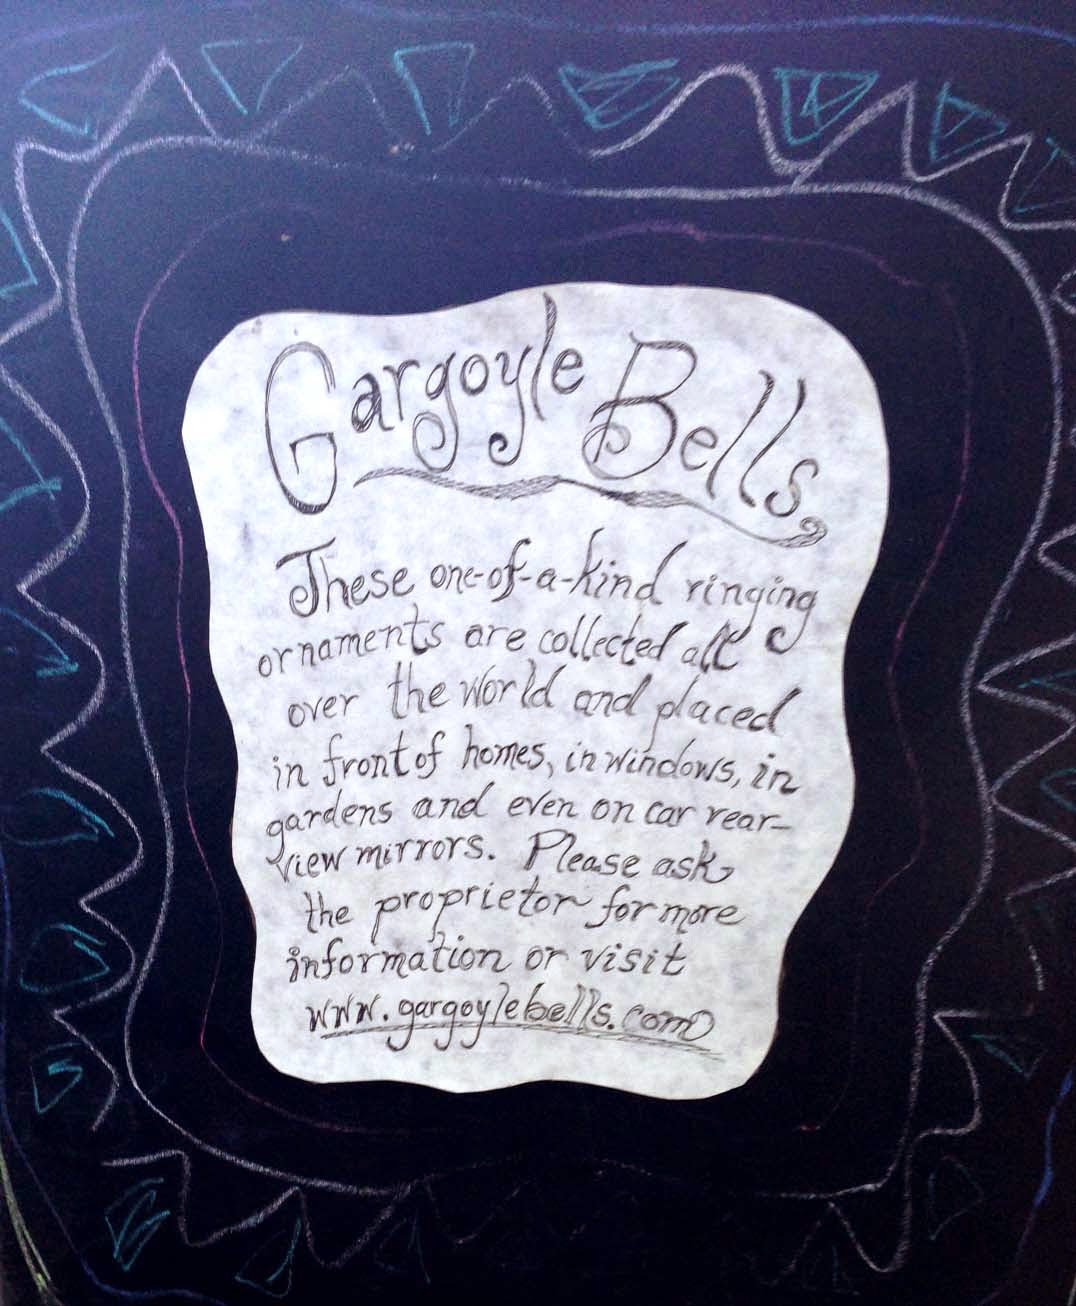 Gargoyle Bells
These one-of-a-kind ringing
ornaments are collected all
over the world and placed
in front of homes, in windows, in
gardens and even on car rear-
view mirrors. Please ask
the proprietor for more
information or visit
www.gargoylebells.com